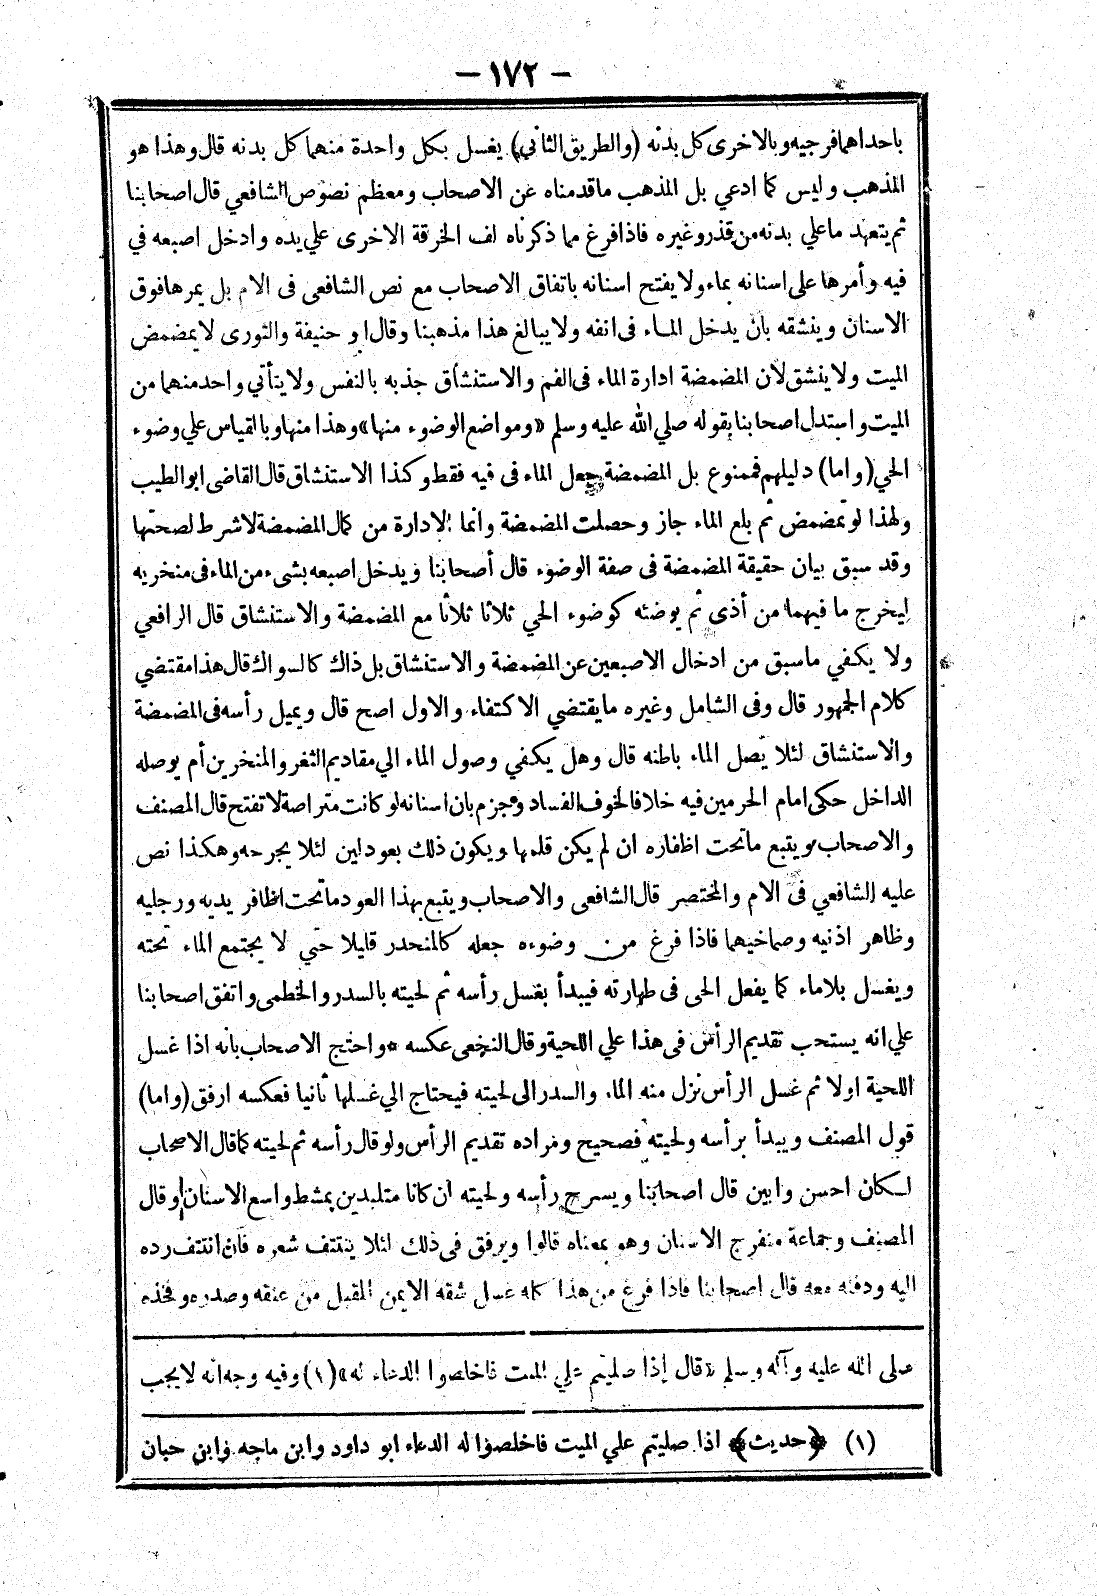 - ١٧٢ -
باحداهما فرجيه وبالاخرى كل بدنه (والطريق الثاني) يغسل بكل واحدة منهما كل بدنه قال وهذا هو
المذهب وليس كما ادعي بل المذهب ما قدمناه عن الاصحاب ومعظم نصوص الشافعي قال اصحابنا
ثم يتعهد ما علي بدنه من قذر وغيره فاذا فرغ مما ذكرناه لف الخرقة الاخرى علي يده وادخل اصبعه في
فيه وأمرها على اسنانه بماء ولا يفتح اسنانه باتفاق الاصحاب مع نص الشافعى فى الام بل يمرها فوق
الاسنان وينشقه بان يدخل المـاء فى انفه ولا يبالغ هذا مذهبنا وقال ابو حنيفة والثورى لا يمضمض
الميت ولا ينشق لأن المضمضة ادارة الماء فى الفم والاستنشاق جذبه بالنفس ولا يتأتي واحد منهما من
الميت واستدل اصحابنا بقوله صلي الله عليه وسلم «ومواضع الوضوء منها» وهذا منها وبالقياس علي وضوء
الحي (واما) دليلهم فممنوع بل المضمضة جعل الماء فى فيه فقط وكذا الاستنشاق قال القاضى ابو الطيب
ولهذا لو تمضمض ثم بلع الماء جاز وحصلت المضمضة وانما الادارة من كمال المضمضة لا شرط لصحتها
وقد سبق بيان حقيقة المضمضة فى صفة الوضوء قال أصحابنا ويدخل اصبعه بشىء من الماء فى منخريه
ليخرج ما فيهما من أذى ثم يوضئه كوضوء الحي ثلاثا ثلاثا مع المضمضة والاستنشاق قال الرافعي
ولا يكفي ما سبق من ادخال الاصبعين عن المضمضة والاستنشاق بل ذاك كالسواك قال هذا مقتضي
كلام الجمهور قال وفى الشامل وغيره ما يقتضي الاكتفاء والاول اصح قال ويميل رأسه فى المضمضة
والاستنشاق لئلا يصل الماء باطنه قال وهل يكفي وصول الماء الي مقاديم الثغر والمنخرين أم يوصله
الداخل حكى امام الحرمين فيه خلافا لخوف الفساد وجزم بان اسنانه لو كانت متراصة لا تفتح قال المصنف
والاصحاب ويتبع ماتحت اظفاره ان لم يكن قلمها ويكون ذلك بعود لين لئلا يجرحه وهكذا نص
عليه الشافعي فى الام والمختصر قال الشافعى والاصحاب ويتبع بهذا العود ماتحت اظافر يديه ورجليه
وظاهر اذنيه وصماخيهما فاذا فرغ من وضوءه جعله كالمنحدر قليلا حتي لا يجتمع الماء تحته
ويغسل بلاماء كما يفعل الحى فى طهارته فيبدأ بغسل رأسه ثم لحيته بالسدر والخطمى واتفق اصحابنا
علي انه يستحب تقديم الرأس فى هذا علي اللحية وقال النخعى عكسه * واحتج الاصحاب بانه اذا غسل
اللحية اولا ثم غسل الرأس نزل منه الماء والسدر الى لحيته فيحتاج الي غسلها ثانيا فعكسه ارفق (واما)
قول المصنف ويبدأ برأسه ولحيته فصحيح ومراده تقديم الرأس ولو قال رأسه ثم لحيته كما قال الاصحاب
لـكان احسن وابين قال اصحابنا ويسرح رأسه ولحيته ان كانا متلبدين بمشط واسع الاسنان وقال
المصنف وجماعة منفرج الاسنان وهو بمعناه قالوا ويرفق فى ذلك لئلا ينتتف شعره فان انتتف رده
اليه ودفنه معه قال اصحابنا فاذا فرغ من هذا كله غسل شقه الايمن المقبل من عنقه وصدره وفخذه
صلى الله عليه وآله وسلم «قال إذا صليتم علي الميت فاخلصوا الدعاء له» (١) وفيه وجه انه لا يجب
(١) ﴿حديث﴾ اذا صليتم علي الميت فاخلصوا له الدعاء ابو داود وابن ماجه وابن حبان